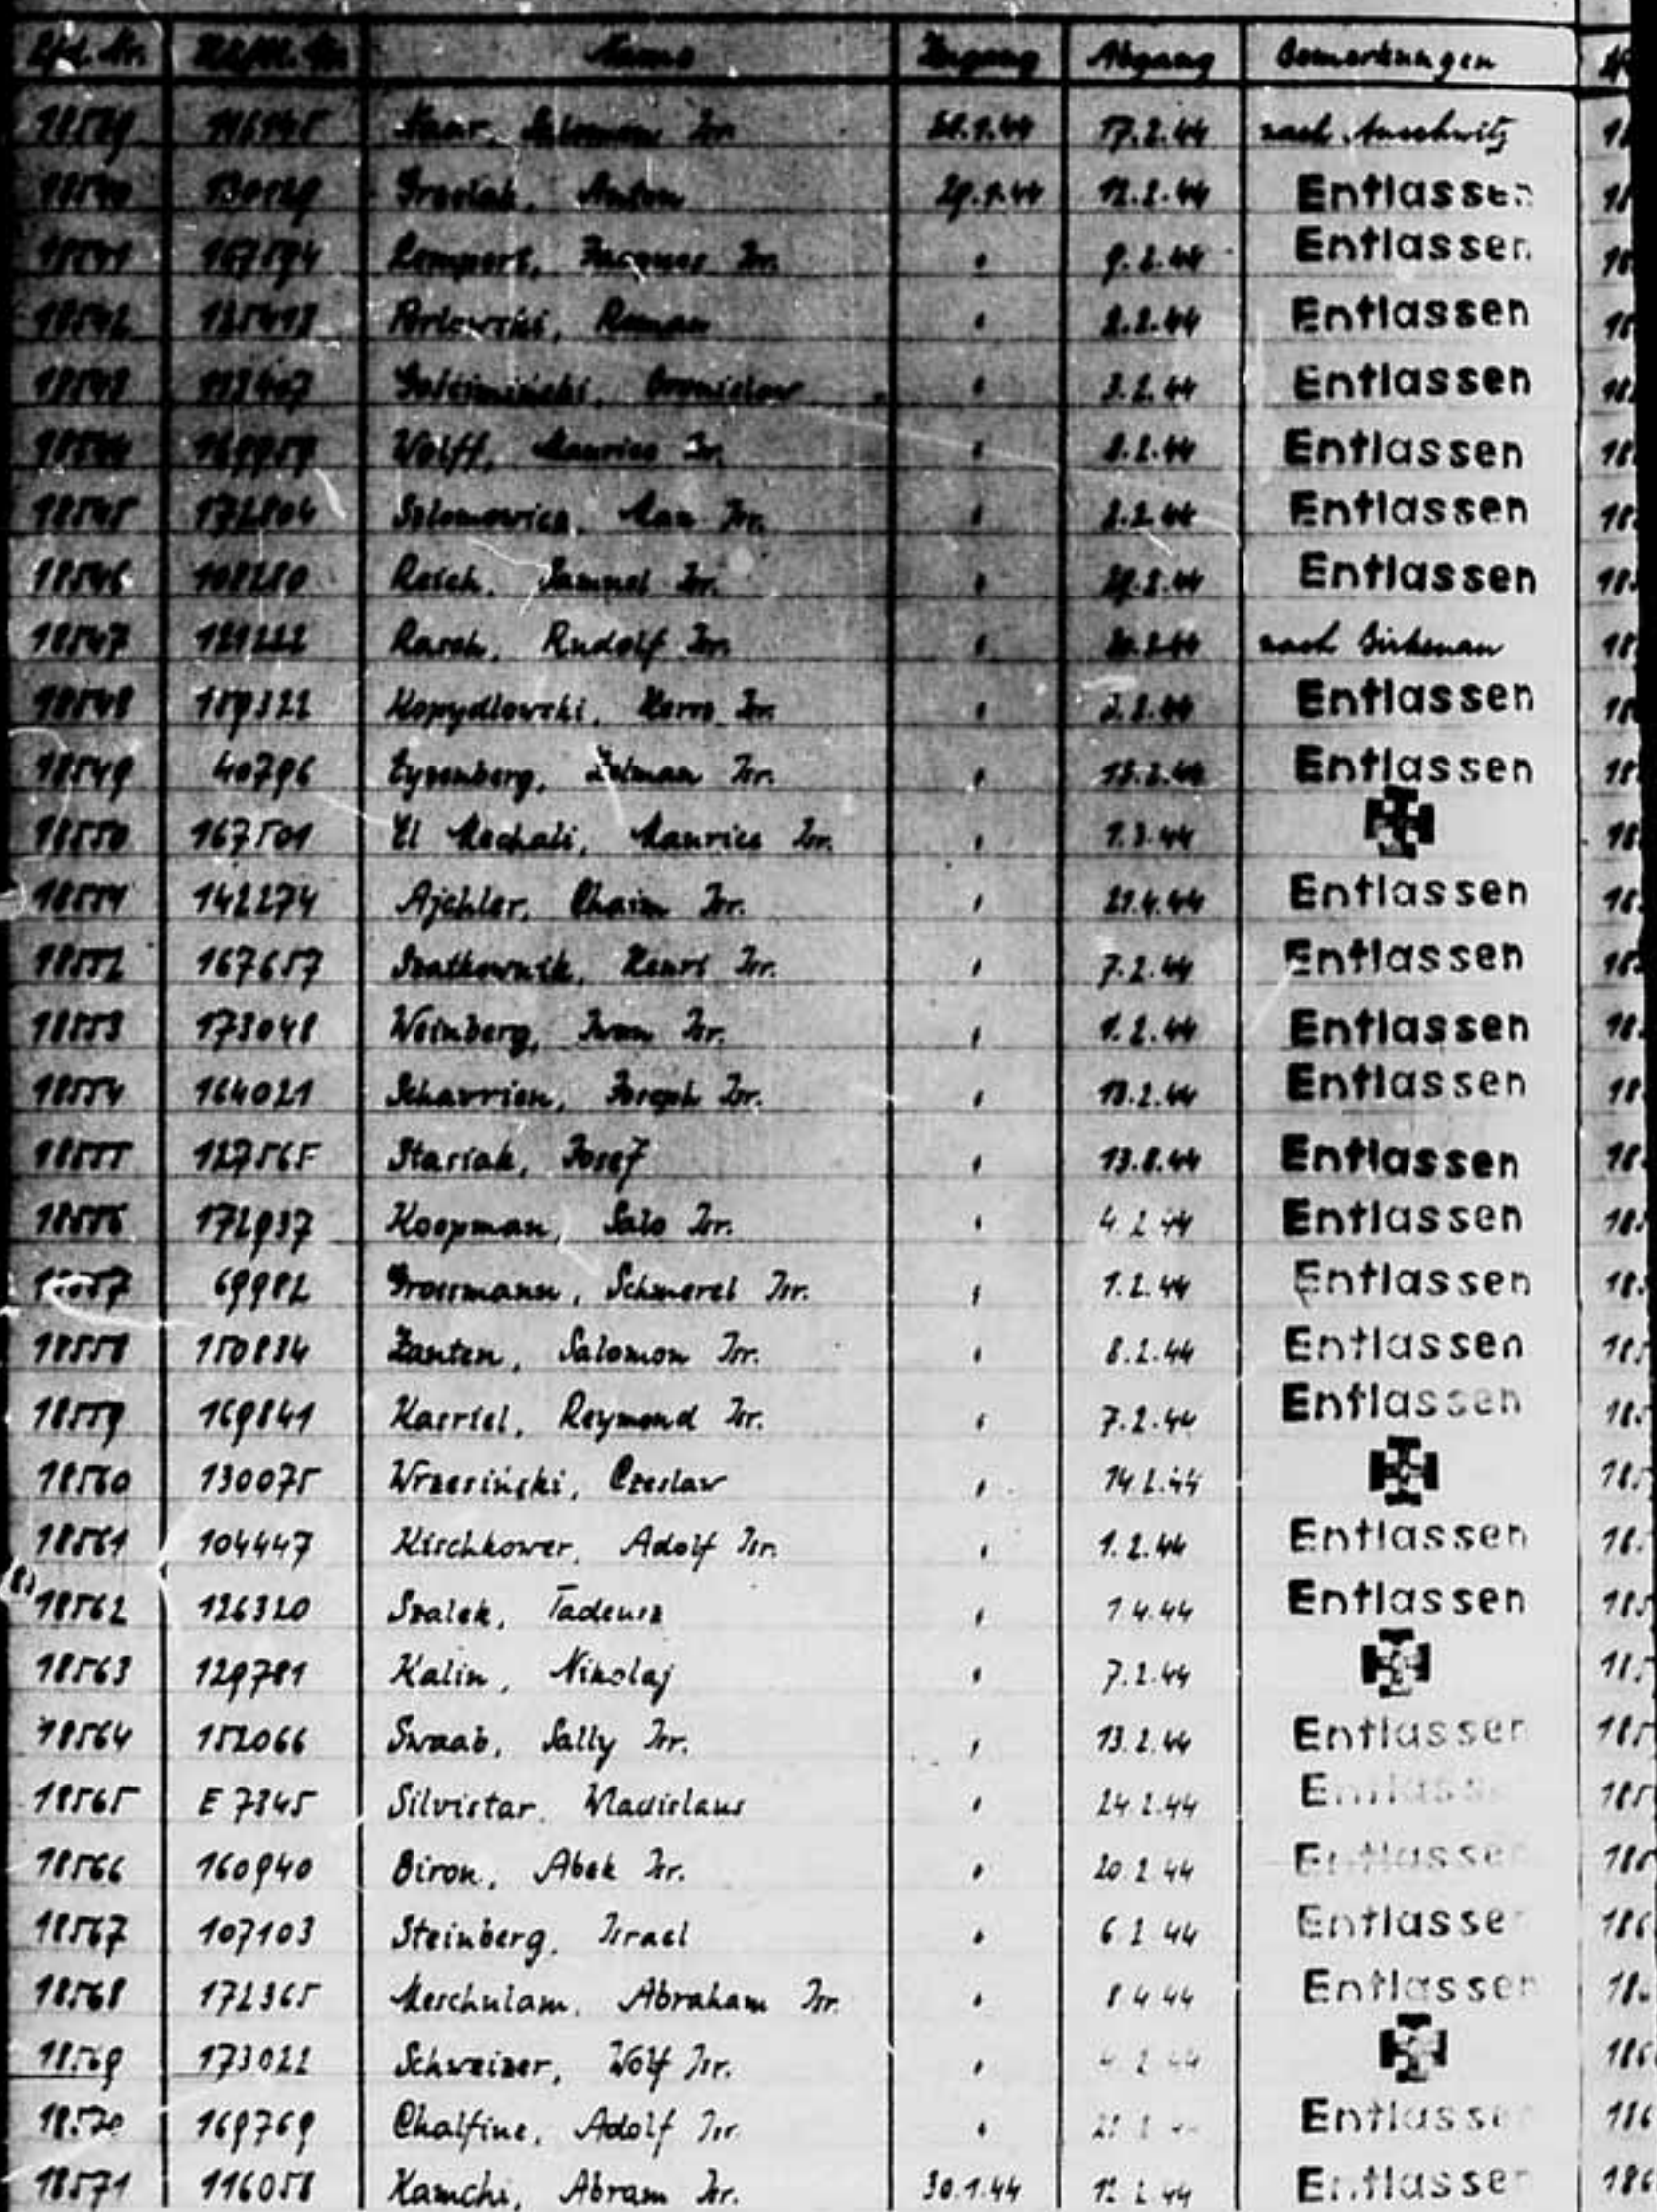 Lfd. Nr. Häftl. Nr. Name Zugang Abgang Bemerkungen
18539 116145 Naar, Salomon Isr. 17.2.44 nach Auschwitz
18540 130129 Anton 29.1.44 12.2.44 Entlassen
18541 167594 Lompert, Jacques Isr. " 9.2.44 Entlassen
18542 125413 Roman " 2.2.44 Entlassen
18543 Bronislaw " 3.2.44 Entlassen
18544 Wolff, Maurice Isr. " 8.2.44 Entlassen
18545 172804 Salomowicz, Max Isr. " 2.2.44 Entlassen
18546 108280 Reich, Samuel Isr. " Entlassen
18547 121222 Rasch, Rudolf Isr. " nach Birkenau
18548 159322 Kopydlowski, Isr. " Entlassen
18549 40796 Eyzenberg, Zelman Isr. " 13.2.44 Entlassen
18550 167501 El Mechali, Maurice Isr. " 1.3.44
18551 142274 Ajchler, Chaim Isr. " 21.4.44 Entlassen
18552 167657 Szatkownik, Henri Isr. " 7.2.44 Entlassen
18553 173048 Weinberg, Iwan Isr. " 1.2.44 Entlassen
18554 164021 Scharrien, Joseph Isr. " 18.2.44 Entlassen
18555 127565 Stasiak, Josef " 13.8.44 Entlassen
18556 172937 Koopman, Salo Isr. " 4.2.44 Entlassen
18557 69982 Grossmann, Schmerel Isr. " 1.2.44 Entlassen
18558 150834 Zanten, Salomon Isr. " 8.2.44 Entlassen
18559 169841 Kasriel, Reymond Isr. " 7.2.44 Entlassen
18560 130075 Wrzesiński, Czeslaw " 14.2.44
18561 104447 Kirschkower, Adolf Isr. " 1.2.44 Entlassen
18562 126320 Szalek, Tadeusz " 1.4.44 Entlassen
18563 129781 Kalin, Nikolaj " 7.2.44
18564 152066 Swaab, Sally Isr. " 13.2.44 Entlassen
18565 E 7345 Silvistar, Wladislaus " 24.2.44 Entlassen
18566 160940 Biron, Abek Isr. " 20.2.44 Entlassen
18567 107103 Steinberg, Israel " 6.2.44 Entlassen
18568 172365 Meschulam, Abraham Isr. " 8.4.44 Entlassen
18569 173022 Schweizer, Wolf Isr. " 4.2.44
18570 169769 Chalfine, Adolf Isr. " Entlassen
18571 116058 Kamchi, Abram Isr. 30.1.44 12.2.44 Entlassen